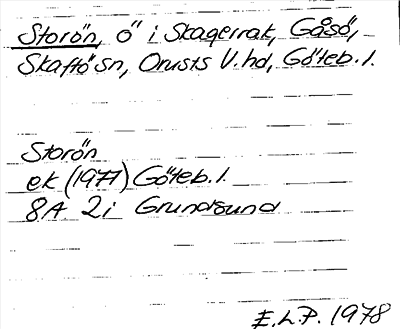 Storön, ö i Skagerrak, Gåsö,
Skaftö sn, Orusts V. hd, Göteb. l.
Storön
ek (1977) Göteb. l.
8A 2i Grundsund
E.L.P. 1978